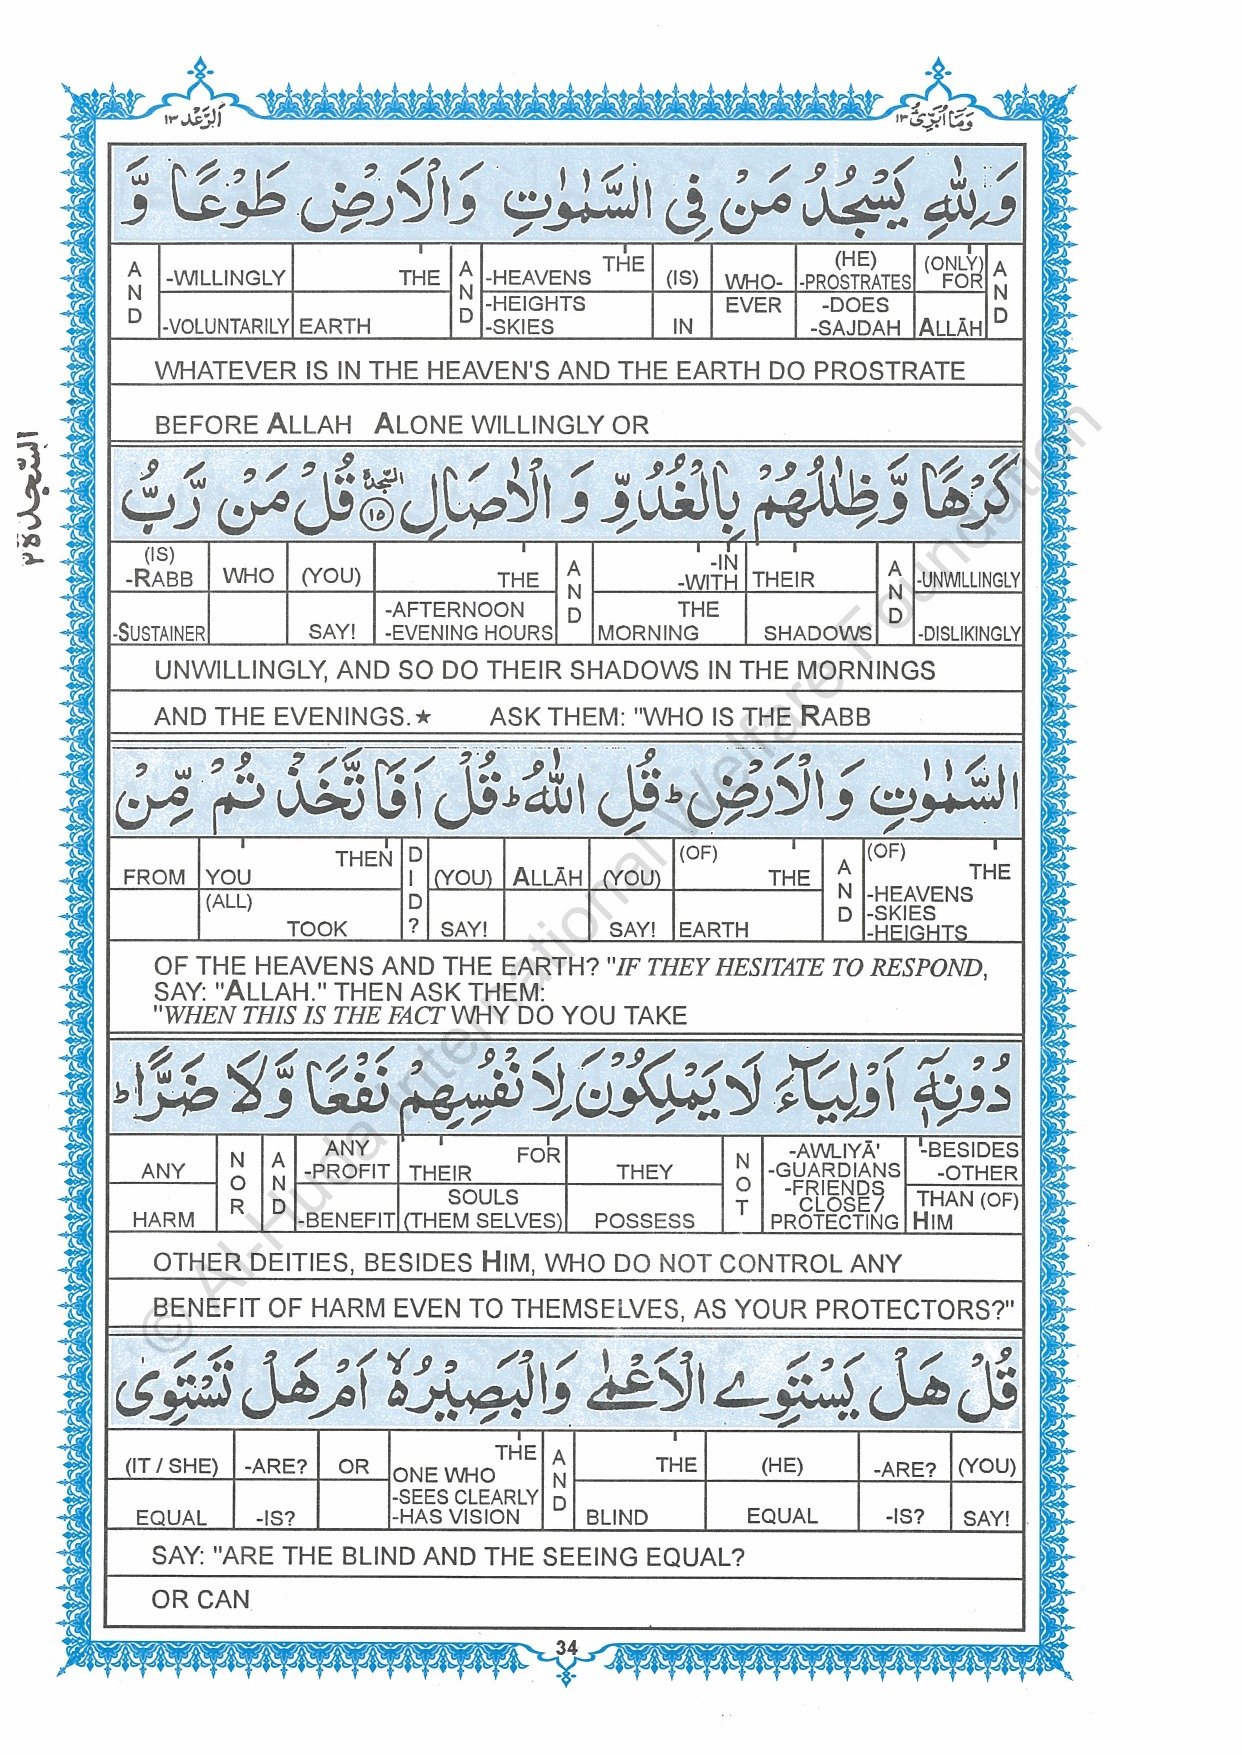 اَلرَّعْد ١٣
وَمَا اُبَرِّئُ ١٣
وَلِلّٰهِ يَسْجُدُ مَنْ فِي السَّمٰوٰتِ وَالْاَرْضِ طَوْعًا وَّ
AND -WILLINGLY THE AND -HEAVENS THE (IS) WHO- (HE) -PROSTRATES (ONLY) FOR AND
-VOLUNTARILY EARTH -HEIGHTS -SKIES IN EVER -DOES -SAJDAH ALLĀH
WHATEVER IS IN THE HEAVEN'S AND THE EARTH DO PROSTRATE
BEFORE ALLAH ALONE WILLINGLY OR
السّجدة ٢
كَرْهًا وَّظِلٰلُهُمْ بِالْغُدُوِّ وَالْاٰصَالِ ۩ ١٥ السجدة قُلْ مَنْ رَّبُّ
(IS) -RABB WHO (YOU) THE AND -IN -WITH THEIR AND -UNWILLINGLY
-SUSTAINER SAY! -AFTERNOON -EVENING HOURS THE MORNING SHADOWS -DISLIKINGLY
UNWILLINGLY, AND SO DO THEIR SHADOWS IN THE MORNINGS
AND THE EVENINGS.★ ASK THEM: "WHO IS THE RABB
السَّمٰوٰتِ وَالْاَرْضِ ؕ قُلِ اللّٰهُ ؕ قُلْ اَفَاتَّخَذْتُمْ مِّنْ
FROM YOU THEN DID? (YOU) ALLĀH (YOU) (OF) THE AND (OF) THE
(ALL) TOOK SAY! SAY! EARTH -HEAVENS -SKIES -HEIGHTS
OF THE HEAVENS AND THE EARTH? "IF THEY HESITATE TO RESPOND,
SAY: "ALLAH." THEN ASK THEM:
"WHEN THIS IS THE FACT WHY DO YOU TAKE
دُوْنِهٖٓ اَوْلِيَآءَ لَا يَمْلِكُوْنَ لِاَنْفُسِهِمْ نَفْعًا وَّلَا ضَرًّا ؕ
ANY NOR AND ANY -PROFIT THEIR FOR THEY NOT -AWLIYĀ' -GUARDIANS -BESIDES -OTHER
HARM -BENEFIT SOULS (THEM SELVES) POSSESS -FRIENDS CLOSE / PROTECTING THAN (OF) HIM
OTHER DEITIES, BESIDES HIM, WHO DO NOT CONTROL ANY
BENEFIT OF HARM EVEN TO THEMSELVES, AS YOUR PROTECTORS?"
قُلْ هَلْ يَسْتَوِي الْاَعْمٰى وَالْبَصِيْرُ ۙ۬ اَمْ هَلْ تَسْتَوِى
(IT / SHE) -ARE? OR THE ONE WHO AND THE (HE) -ARE? (YOU)
EQUAL -IS? -SEES CLEARLY -HAS VISION BLIND EQUAL -IS? SAY!
SAY: "ARE THE BLIND AND THE SEEING EQUAL?
OR CAN
34
© Al-Huda International Welfare Foundation